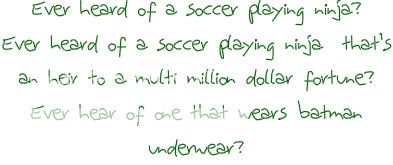 Ever heard of a soccer playing ninja?
Ever heard of a soccer playing ninja that's
an heir to a multi million dollar fortune?
Ever hear of one that wears batman
underwear?